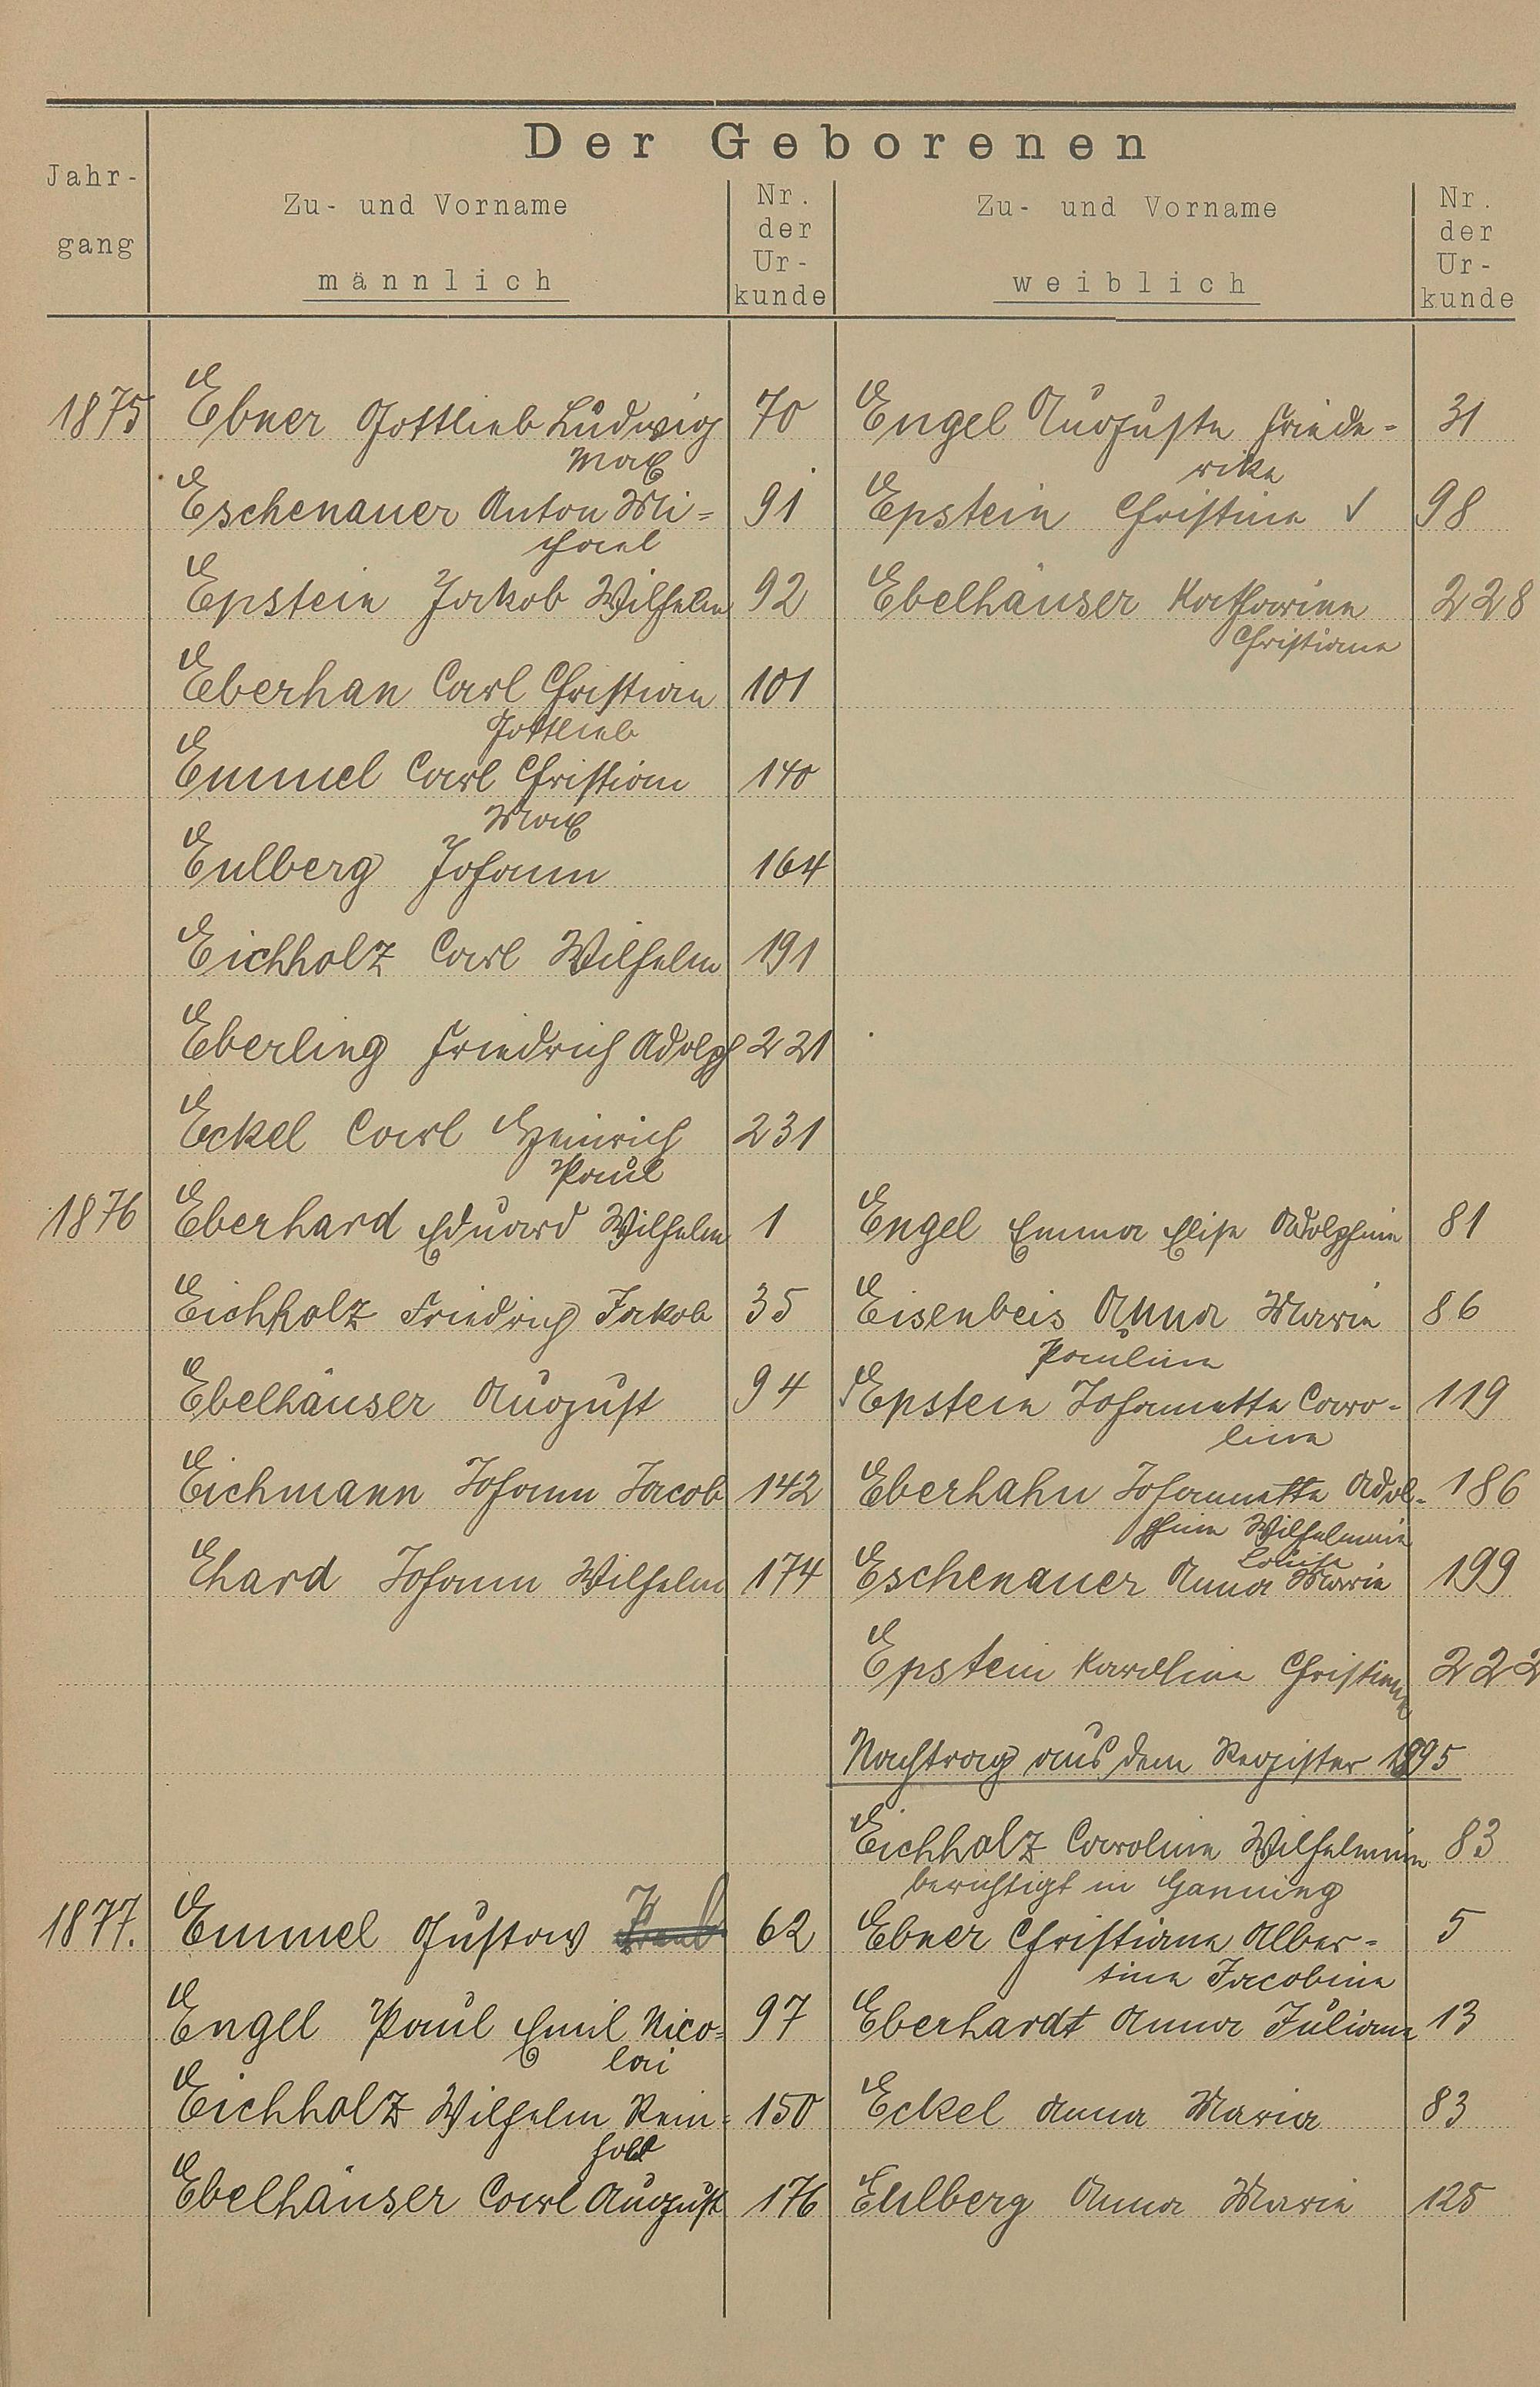 Der Geborenen
Jahr-
gang
Zu- und Vorname
männlich
Nr.
der
Ur-
kunde
Zu- und Vorname
weiblich
Nr.
der
Ur-
kunde
1875 Ebner Gottlieb Ludwig 70 Engel Auguste Friede- 31
Max rike
Eschenauer Anton Mi= 91 Epstein Christine ✓ 98
chael
Epstein Jakob Wilhelm 92 Ebelhäuser Katharine 228
Christiane
Eberhan Carl Christian 101
Gottlieb
Emmel Carl Christian 140
Max
Eulberg Johann 164
Eichholz Carl Wilhelm 191
Eberling Friedrich Adolph 221
Eckel Carl Heinrich 231
Paul
1876 Eberhard Eduard Wilhelm 1 Engel Emma Elise Adolphine 81
Eichholz Friedrich Jakob 35 Eisenbeis Anna Marie 86
Pauline
Ebelhäuser August 94 Epstein Johannette Caro- 119
line
Eichmann Johann Jacob 142 Eberhahn Johannette Adol- 186
phine Wilhelmine
Louise
Ehard Johann Wilhelm 174 Eschenauer Anna Marie 199
Epstein Karoline Christiane 222
Nachtrag aus dem Register 1895
Eichholz Caroline Wilhelmine 83
berichtigt in Hanning
1877. Emmel Gustav 62 Ebner Christiane Alber= 5
tine Jacobine
Engel Paul Emil Nico= 97 Eberhardt Anna Juliane 13
lai
Eichholz Wilhelm Rein= 150 Eckel Anna Maria 83
hold
Ebelhäuser Carl August 176 Eulberg Anna Marie 125